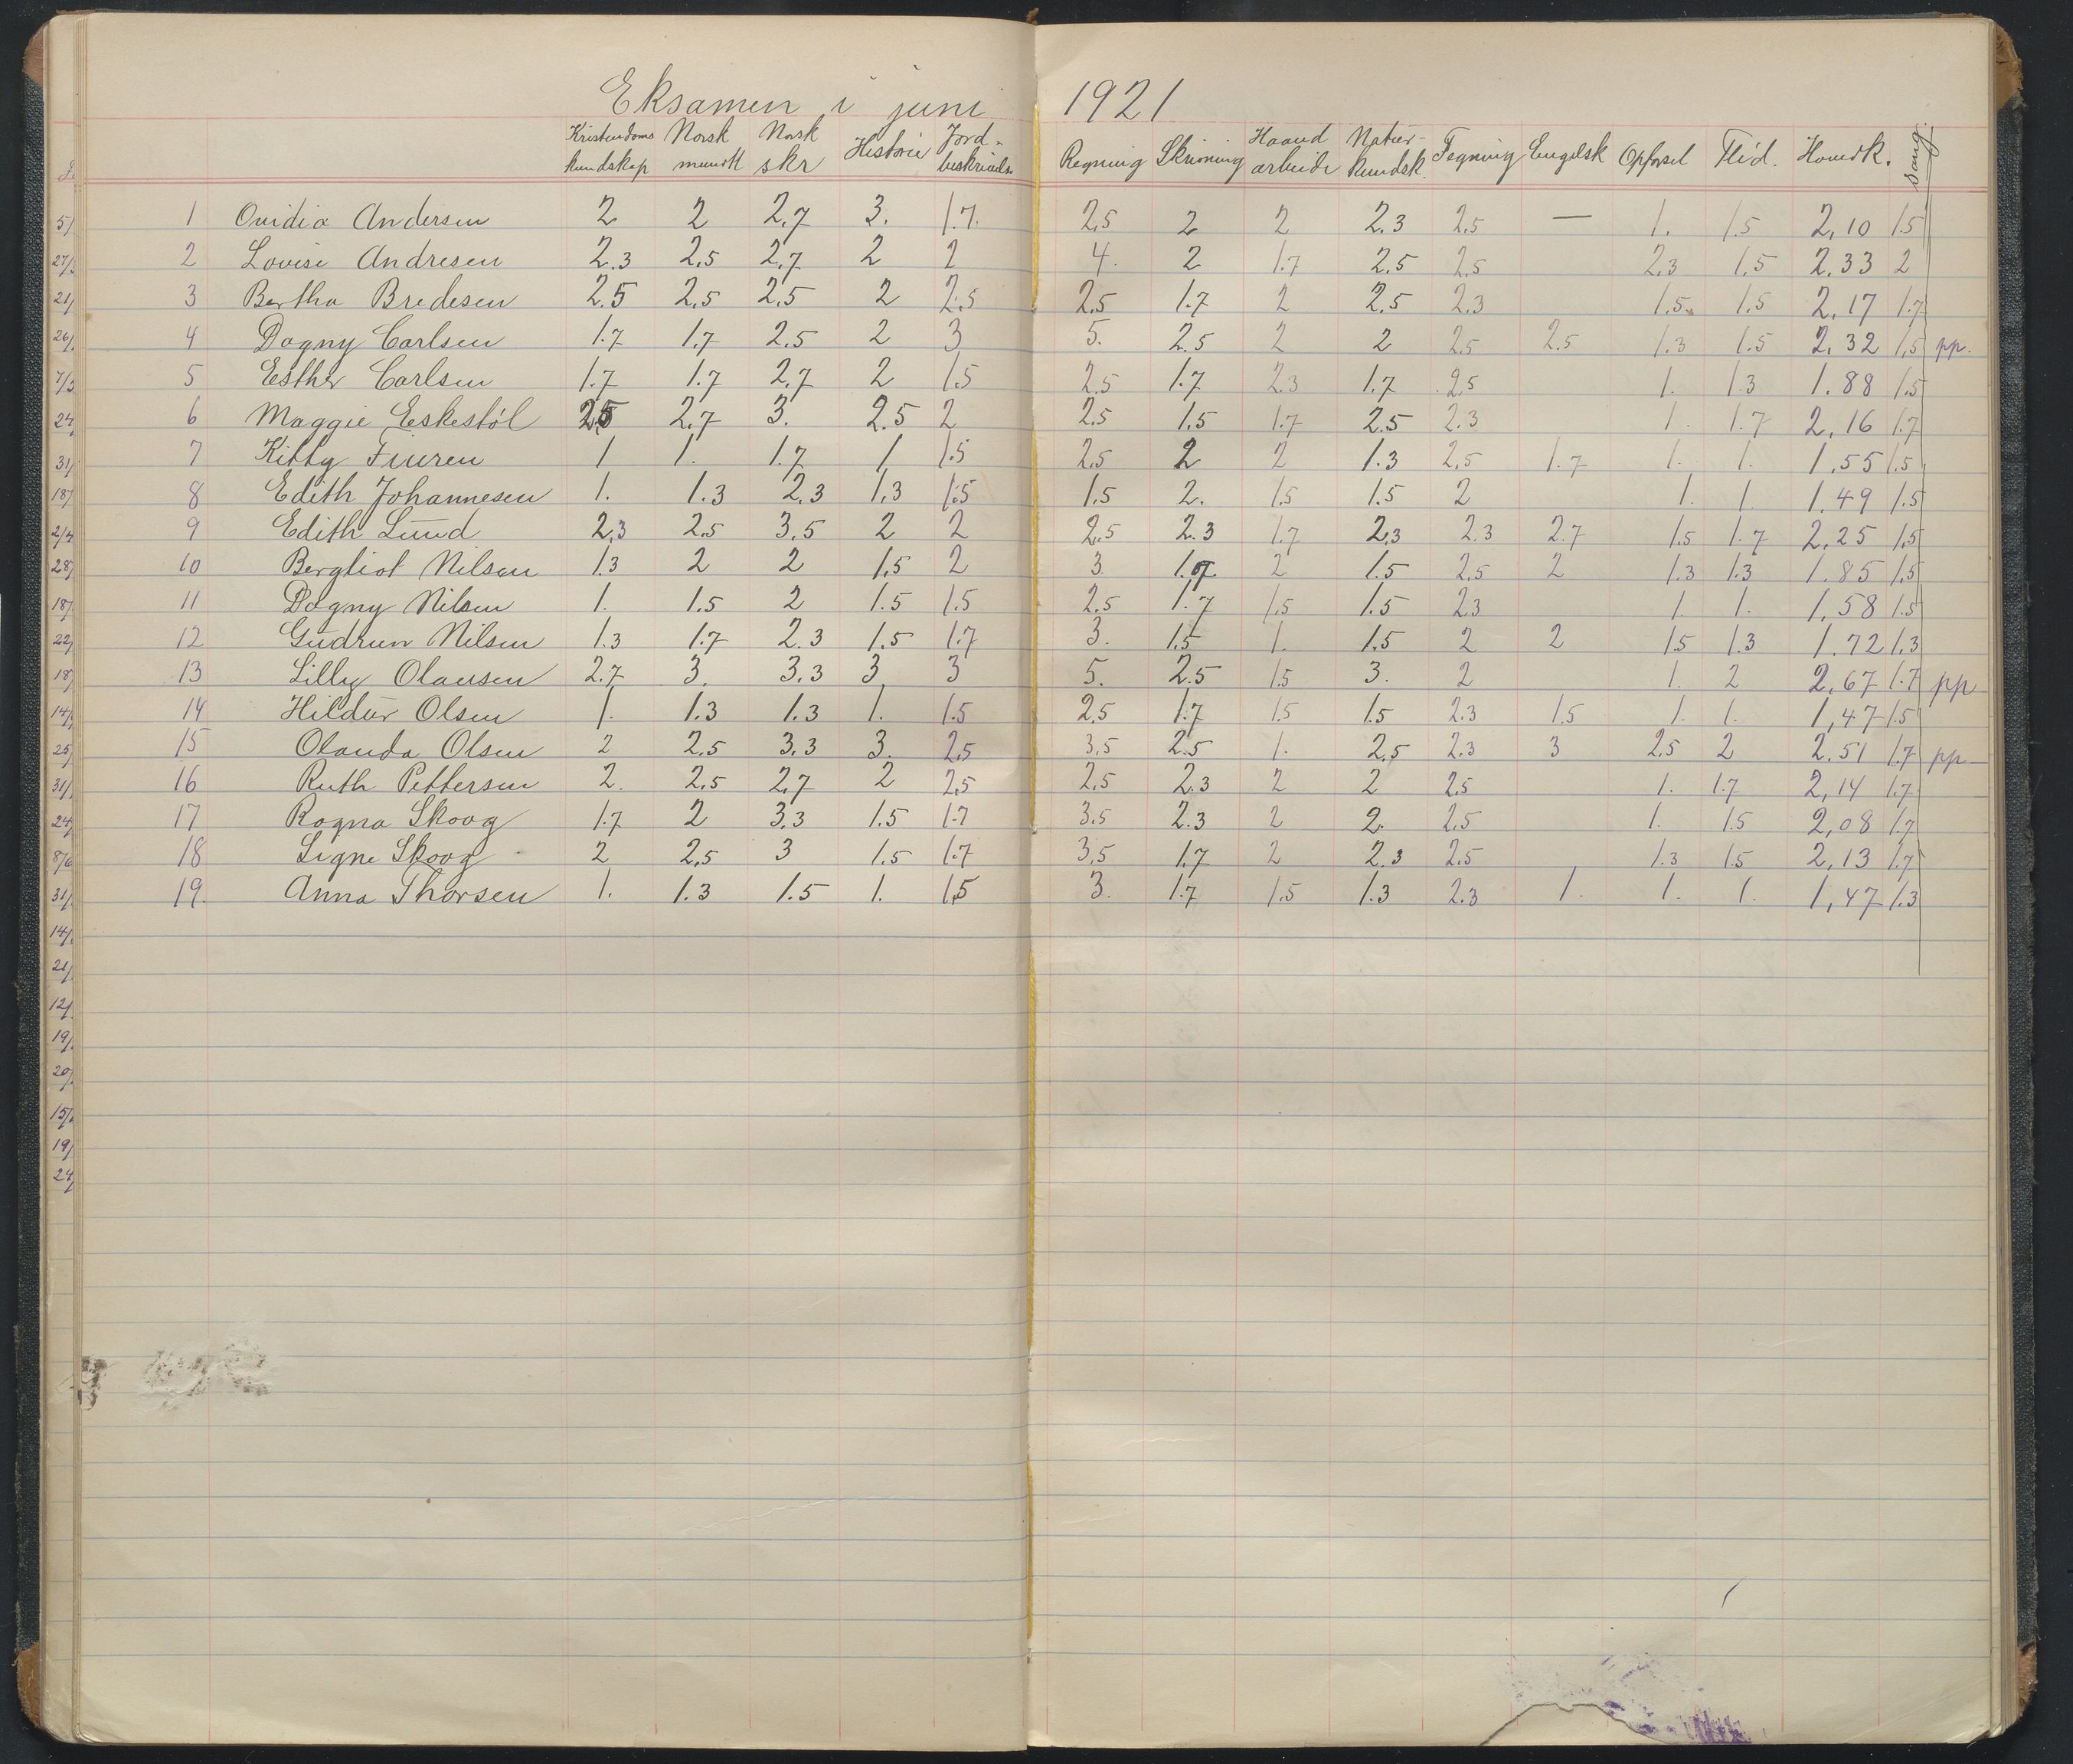 Eksamen i juni 1921
Kristendoms kundskap Norsk mundtl Norsk skr Historie Jord- beskrivels. Regning Skrivning Haand arbeide Natur- kundsk. Tegning Engelsk Opførsel Flid. Hovedk. sang.
1 Ovidia Andersen 2 2 2,7 3. 1.7. 2,5 2 2 2.3 2,5 — 1. 1.5 2,10 1.5
2 Lovise Andresen 2.3 2,5 2,7 2 2 4. 2 1.7 2.5 2,5 2,3 1,5 2.33 2
3 Bertha Bredesen 2.5 2,5 2,5 2 2.5 2,5 1.7 2 2.5 2.3 1.5. 1.5 2,17 1.7
4 Dagny Carlsen 1.7 1,7 2.5 2 3 5. 2.5 2 2 2.5 2.5 1.3 1.5 2,32 1,5 pp.
5 Esther Carlsen 1.7 1.7 2,7 2 1.5 2.5 1.7 2.3 1.7 2.5 1. 1.3 1.88 1.5
6 Maggie Eskestøl 2,5 2,7 3. 2.5 2 2.5 1.5 1.7 2.5 2.3 1. 1.7 2,16 1.7
7 Kitty Fiuren 1 1. 1.7 1 1.5 2,5 2 2 1.3 2,5 1.7 1. 1. 1,55 1.5
8 Edith Johannesen 1. 1.3 2.3 1,3 1.5 1,5 2. 1.5 1.5 2 1. 1. 1,49 1.5
9 Edith Lund 2,3 2,5 3.5 2 2 2,5 2.3 1.7 2,3 2.3 2.7 1.5 1.7 2,25 1,5
10 Bergliot Nilsen 1.3 2 2 1,5 2 3. 1.7 2 1.5 2,5 2 1.3 1.3 1.85 1,5
11 Dagny Nilsen 1. 1.5 2 1.5 1.5 2.5 1.7 1.5 1.5 2.3 1. 1. 1,58 1.5
12 Gudrun Nilsen 1.3 1.7 2.3 1.5 1.7 3. 1.5 1. 1,5 2 2 1.5 1.3 1.72 1.3
13 Lilly Olausen 2.7 3. 3.3 3 3 5. 2.5 1.5 3. 2 1. 2 2,67 1.7 pp
14 Hildur Olsen 1. 1.3 1.3 1. 1.5 2,5 1.7 1.5 1.5 2.3 1.5 1. 1. 1,47 1.5
15 Olauda Olsen 2 2.5 3,3 3. 2,5 3,5 2.5 1. 2,5 2.3 3 2.5 2 2.51 1.7 pp
16 Ruth Pettersen 2. 2,5 2,7 2 2,5 2,5 2.3 2 2 2,5 1. 1.7 2,14 1.7
17 Ragna Skoog 1.7 2 3.3 1.5 1.7 3.5 2.3 2 2. 2,5 1. 1.5 2,08 1.7
18 Signe Skoog 2 2,5 3 1.5 1.7 3,5 1.7 2 2.3 2.5 1.3 1.5 2,13 1.7
19. Anna Thorsen 1. 1.3 1.5 1. 1,5 3. 1.7 1.5 1.3 2.3 1. 1. 1. 1,47 1.3